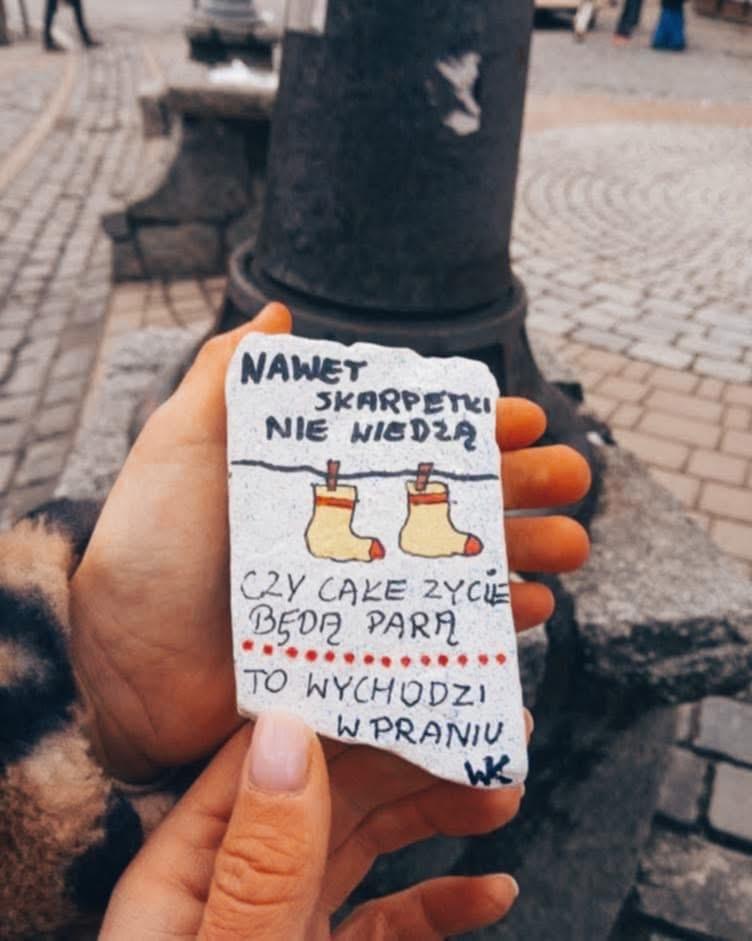 NAWET
SKARPETKI
NIE WIEDZĄ
CZY CAŁE ZYCIE
BĘDĄ PARĄ
TO WYCHODZI
W PRANIU
WK